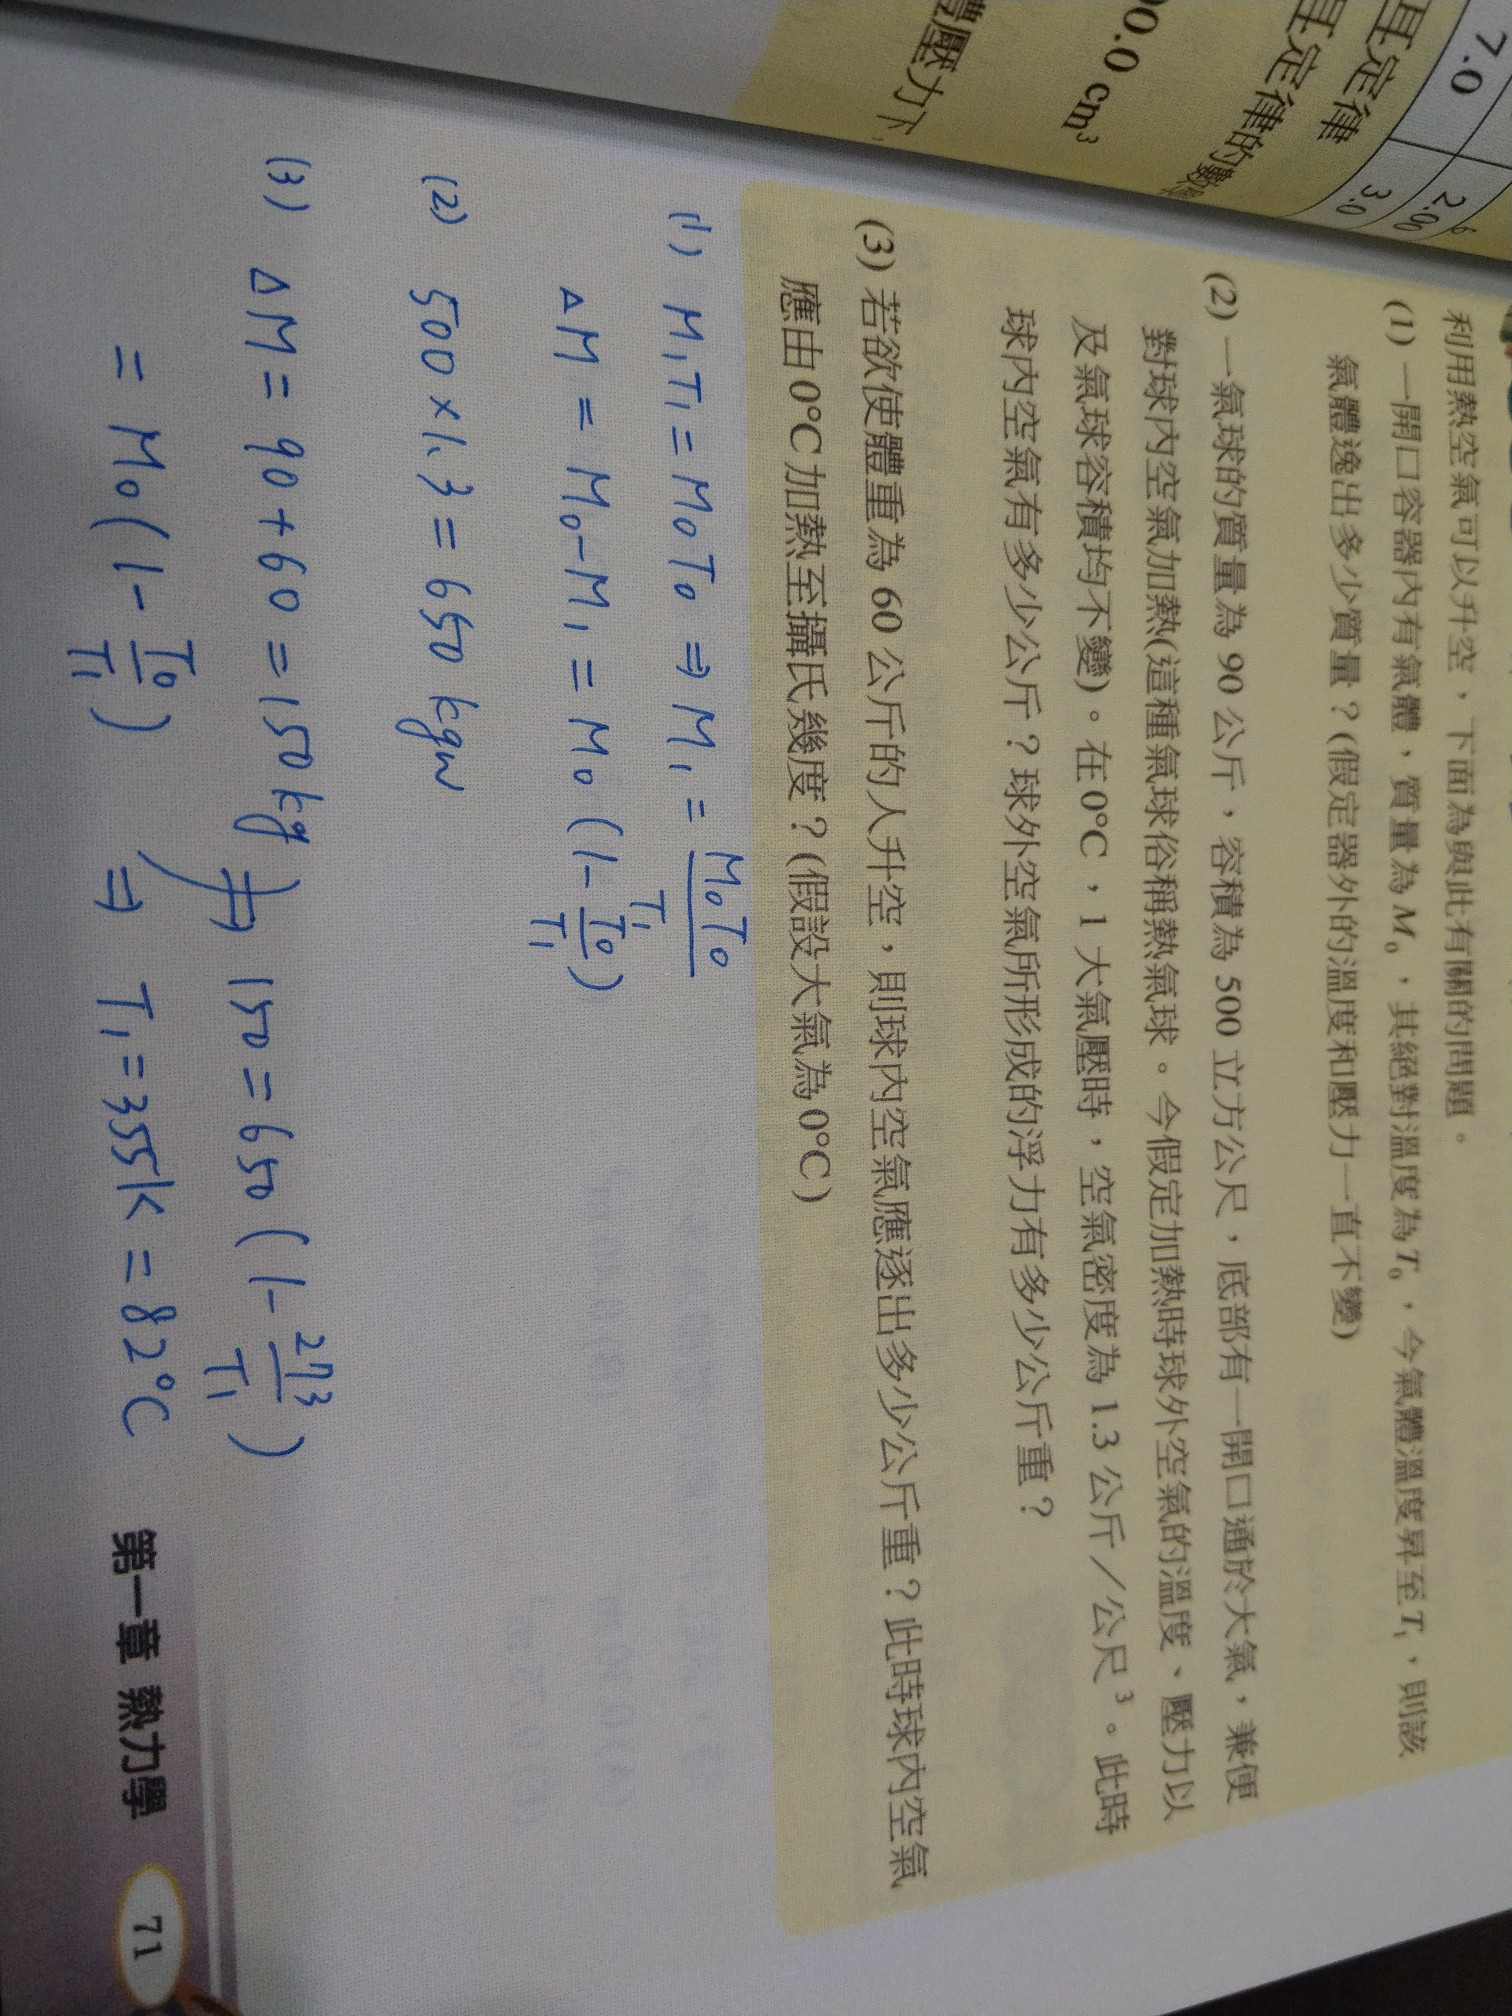 7.0
2.00
3.0
耳定律
耳定律的數
00.0 cm³
壓力下，
利用熱空氣可以升空，下面為與此有關的問題。
(1) 一開口容器內有氣體，質量為 M₀，其絕對溫度為 T₀，今氣體溫度昇至 T₁，則該
氣體逸出多少質量？(假定器外的溫度和壓力一直不變)
(2) 一氣球的質量為 90 公斤，容積為 500 立方公尺，底部有一開口通於大氣，兼便
對球內空氣加熱(這種氣球俗稱熱氣球。今假定加熱時球外空氣的溫度、壓力以
及氣球容積均不變)。在 0°C，1 大氣壓時，空氣密度為 1.3 公斤／公尺³。此時
球內空氣有多少公斤？球外空氣所形成的浮力有多少公斤重？
(3) 若欲使體重為 60 公斤的人升空，則球內空氣應逐出多少公斤重？此時球內空氣
應由 0°C 加熱至攝氏幾度？(假設大氣為 0°C)
(1) M₁T₁ = M₀T₀ ⇒ M₁ = M₀T₀/T₁
ΔM = M₀ - M₁ = M₀(1 - T₀/T₁)
(2) 500 × 1.3 = 650 kgw
(3) ΔM = 90 + 60 = 150 kg ⇒ 150 = 650 (1 - 273/T₁)
= M₀(1 - T₀/T₁) ⇒ T₁ = 355K = 82°C
第一章 熱力學 71